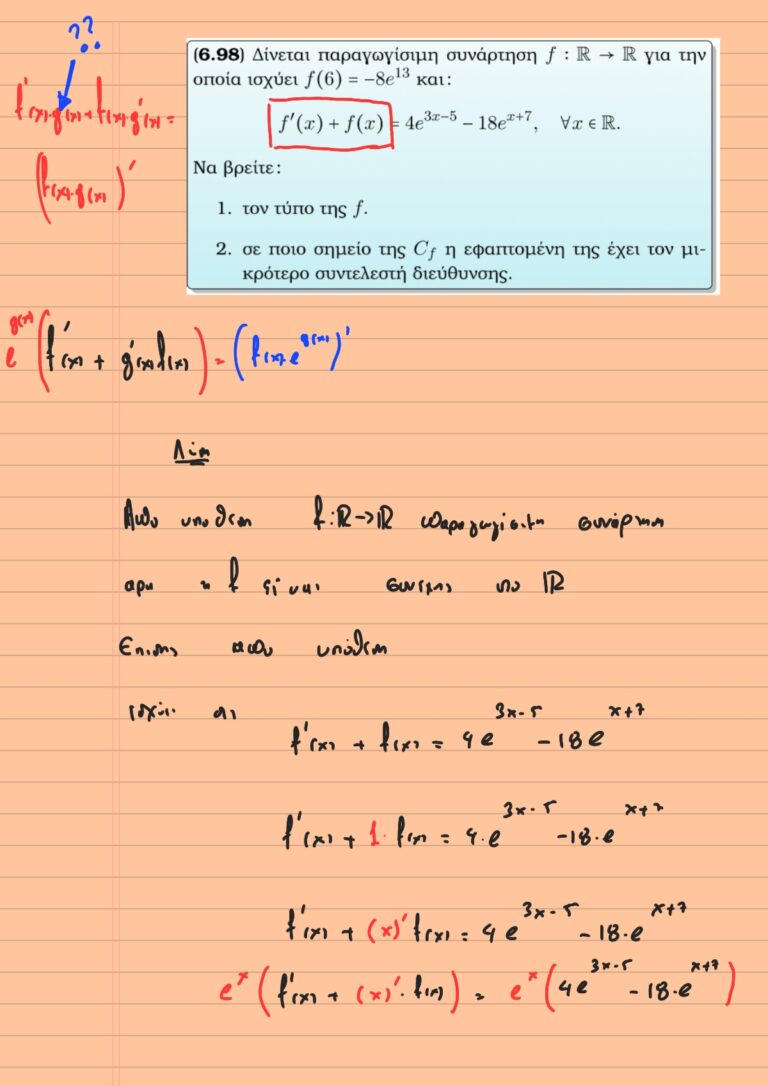 ??
f'(x)·g(x)+f(x)·g'(x) =
(f(x)·g(x))'
(6.98) Δίνεται παραγωγίσιμη συνάρτηση f : ℝ → ℝ για την
οποία ισχύει f(6) = −8e^{13} και:
f'(x) + f(x) = 4e^{3x−5} − 18e^{x+7}, ∀x ∈ ℝ.
Να βρείτε:
1. τον τύπο της f.
2. σε ποιο σημείο της C_f η εφαπτομένη της έχει τον μι-
κρότερο συντελεστή διεύθυνσης.
e^{g(x)} (f'(x) + g'(x)f(x)) = (f(x)e^{g(x)})'
Λύση
Από υπόθεση f:ℝ→ℝ παραγωγίσιμη συνάρτηση
αρα η f είναι συνεχης στο ℝ
Επισης απο υπόθεση
ισχύει οτι
f'(x) + f(x) = 4e^{3x-5} - 18e^{x+7}
f'(x) + 1·f(x) = 4·e^{3x-5} - 18·e^{x+7}
f'(x) + (x)'f(x) = 4e^{3x-5} - 18·e^{x+7}
e^x (f'(x) + (x)'·f(x)) = e^x (4e^{3x-5} - 18·e^{x+7})